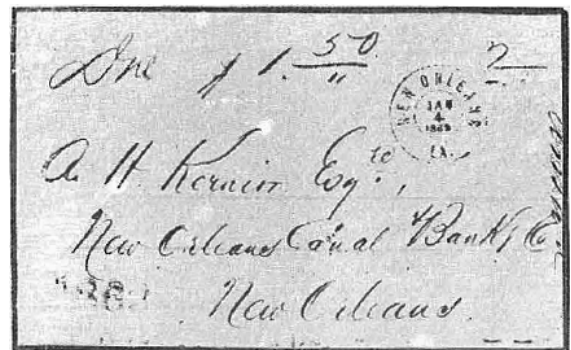 Due $1.50 2
NEW ORLEANS LA.
JAN
4
1869
A. H. Kernion Esqre,
New Orleans Canal & Bank'g Co
New Orleans.